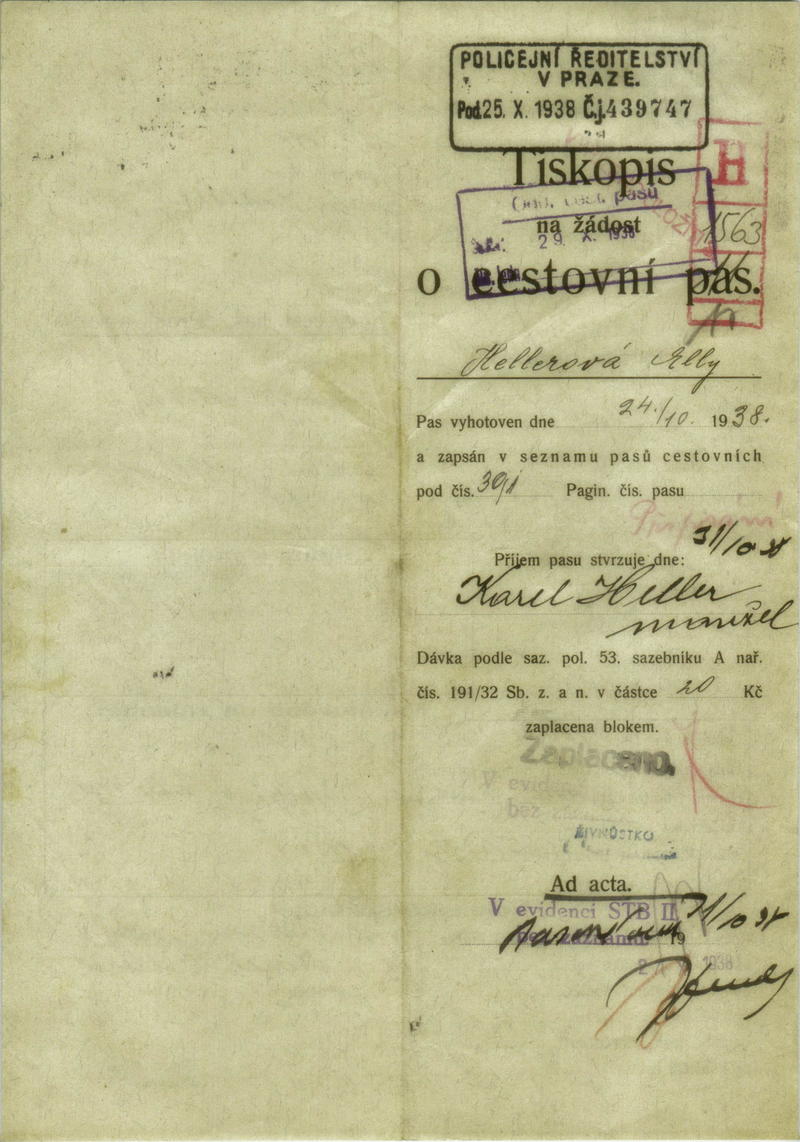 POLICEJNÍ ŘEDITELSTVÍ
V PRAZE.
Pod 25. X. 1938 Č.j. 439747
H
Tiskopis
pasů
1563
na žádost
29. X. 1938
11
o cestovní pas.
Hellerová Elly
Pas vyhotoven dne 24./10. 1938.
a zapsán v seznamu pasů cestovních
pod čís. Pagin. čís. pasu
31/10 38
Příjem pasu stvrzuje dne:
Karel Heller
manžel
Dávka podle saz. pol. 53. sazebníku A nař.
čís. 191/32 Sb. z. a n. v částce 20 Kč
zaplacena blokem.
Zaplaceno.
V eviden
bez
ŽIVNOSTKO
Ad acta.
V evidenci STB II
31/10 38
19
1938